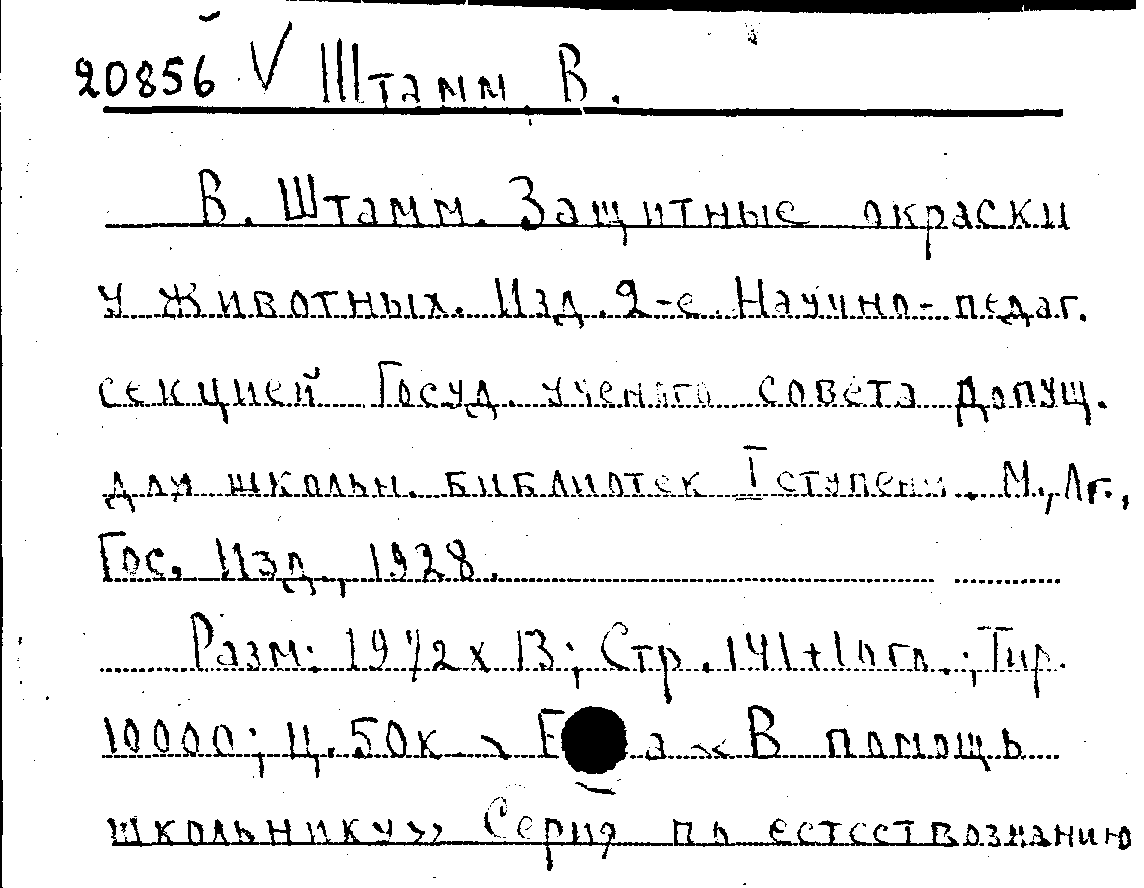 20856 V Штамм В.
В. Штамм. Защитные окраски
у животных. Изд. 2-е. Научно-педаг.
секцией Госуд. ученого совета допущ.
для школьн. библиотек I ступени. М., Лг.,
Гос. Изд., 1928.
Разм: 19 1/2 x 13; Стр. 141+1 огл.; Тир.
10000; Ц. 50к В помощь
школьнику» Серия по естествознанию